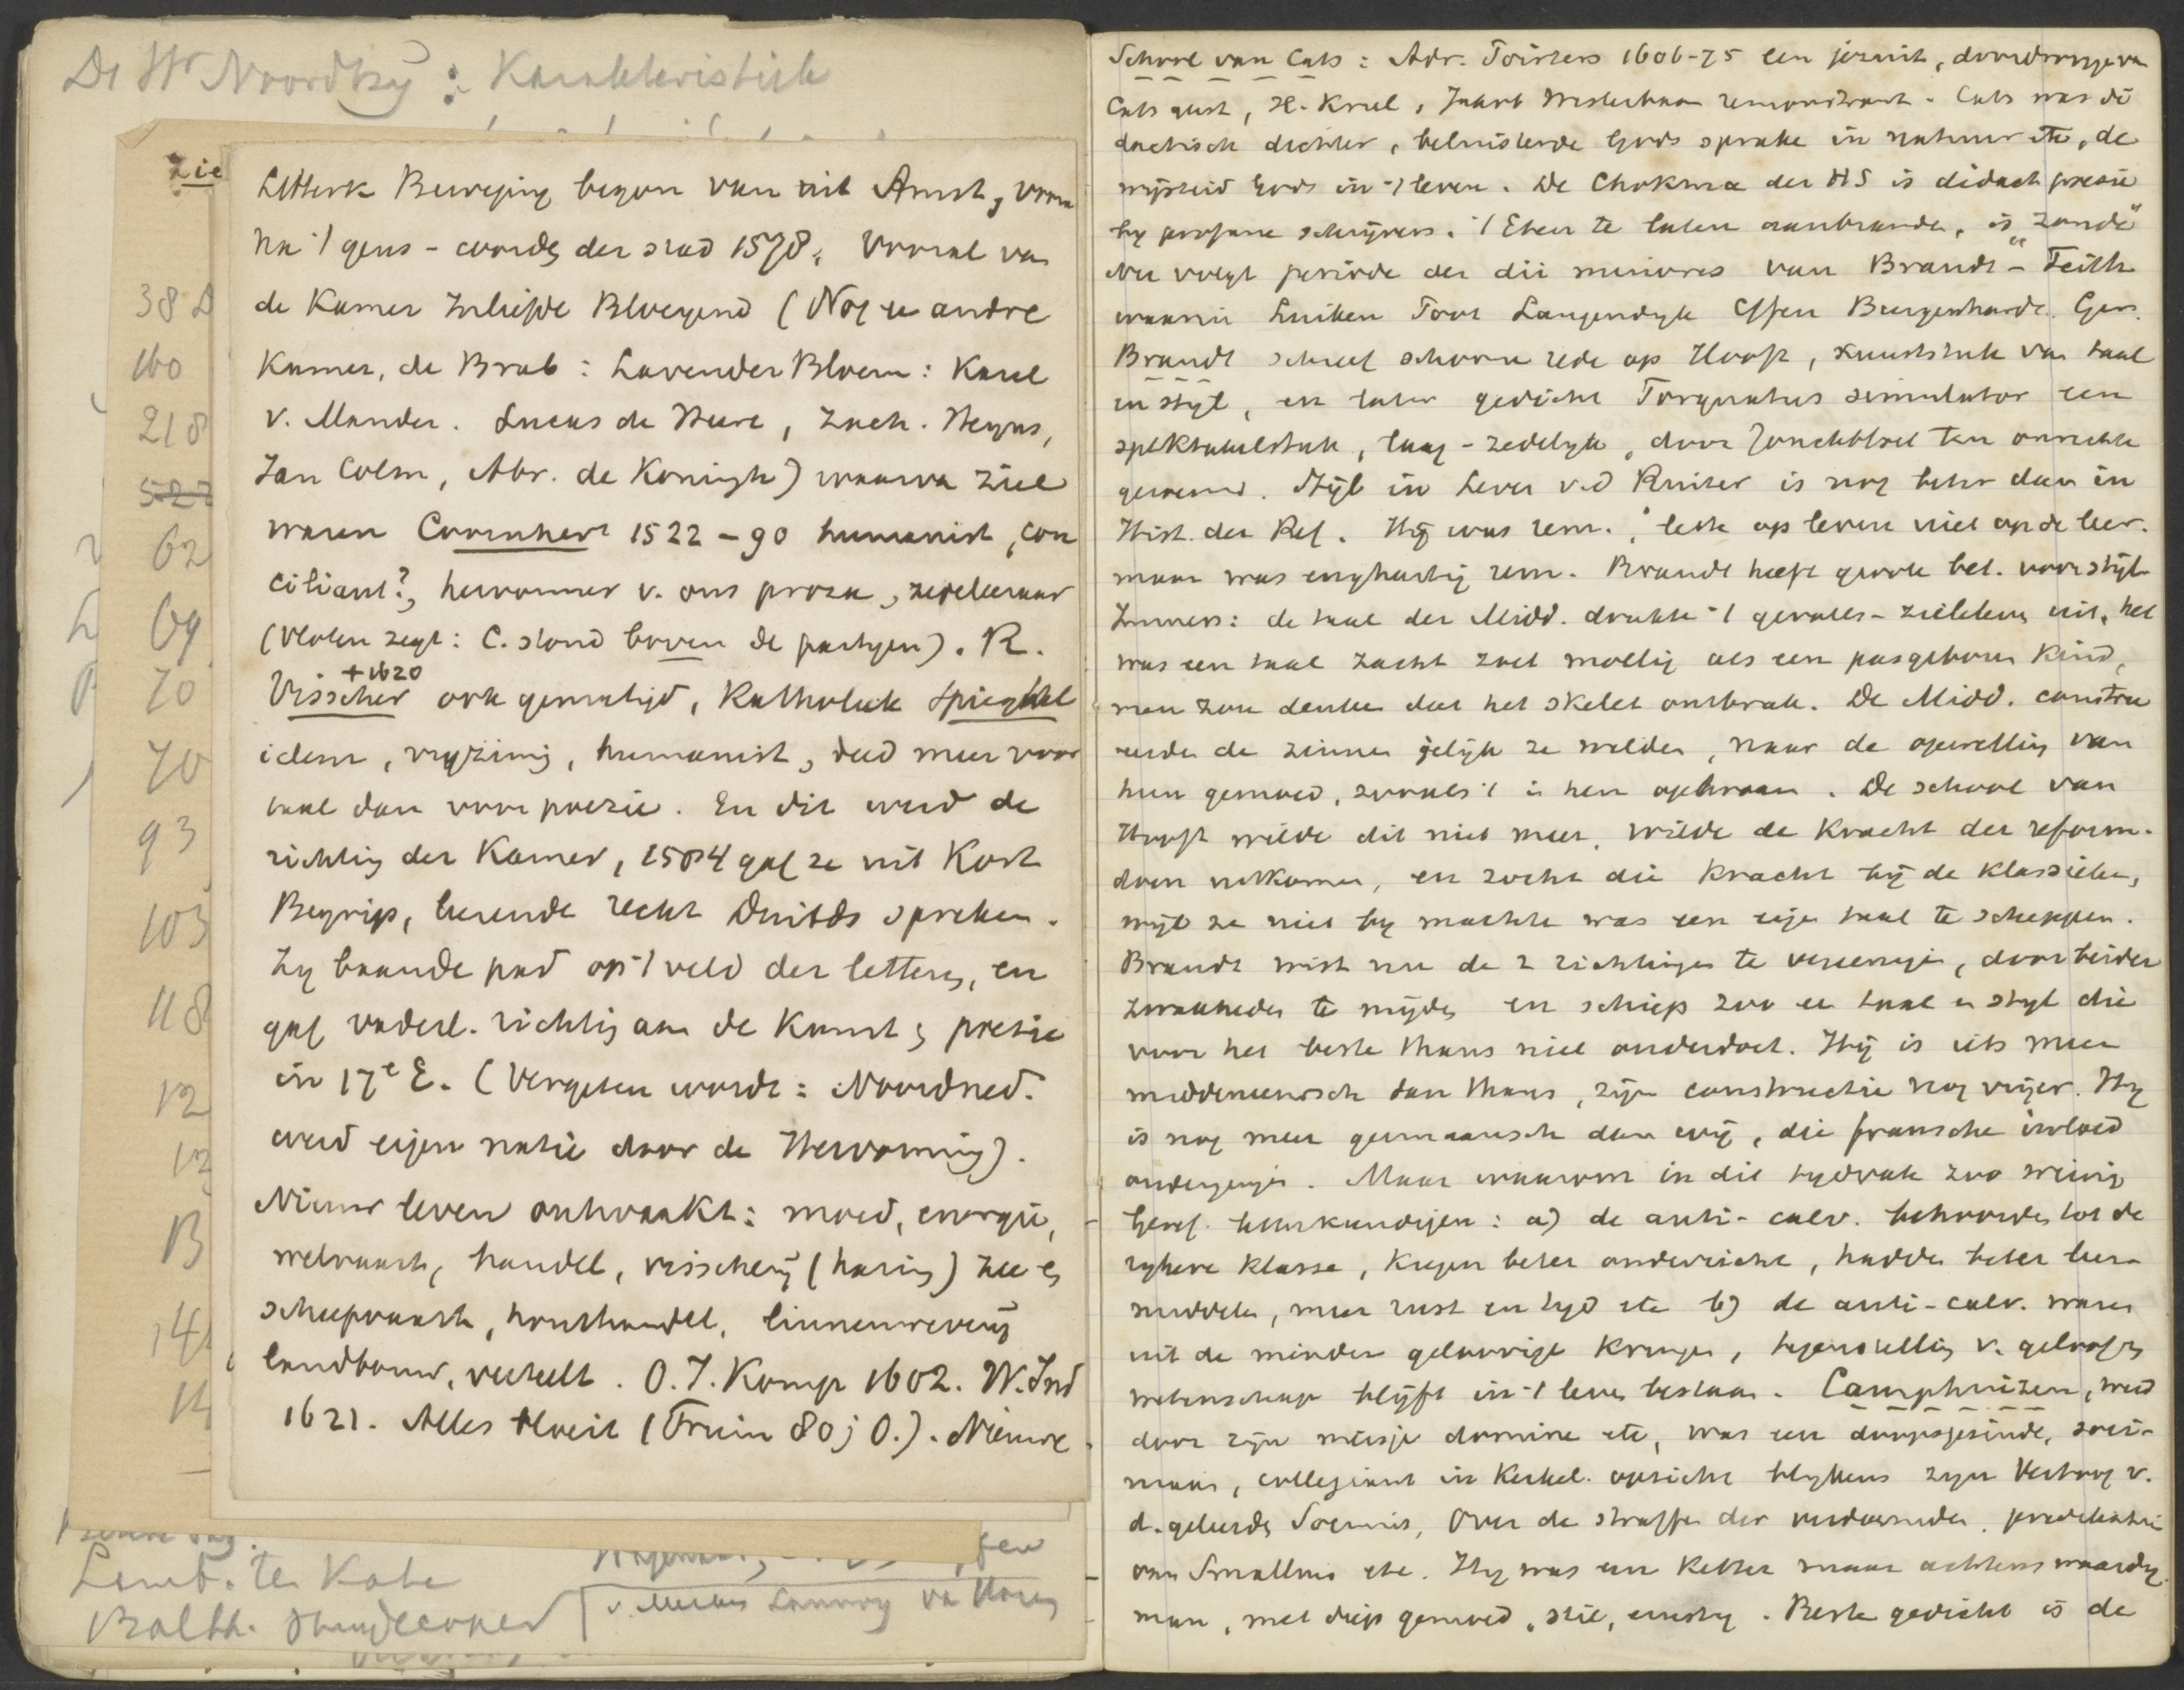 Dr Wr Noordtzij : Karakteristiek
zie
38
160
218
522
62
69
70
70
93
103
118
12
13
B
14
14
Letterk Beweging begon van uit Amst, vooral
na 't geus-worden der stad 1578. Vooral van
de Kamer In liefde Bloeyend (Nog een andre
Kamer, de Brab: Lavender Bloem: Karel
v. Mander. Lucas de Heere, Zach. Heyns,
Jan Colm, Abr. de Koningh) waarvan ziel
waren Coornhert 1522-90 humanist, con
ciliant?, hervormer v. ons proza, zedeleeraar
(Vloten zegt: C. stond boven de partyen). R.
+1620
Visscher ook gematigd, Katholiek Spieghel
idem, vryzinnig, humanist, deed meer voor
taal dan voor poezie. En dit werd de
richting der Kamer, 1584 gaf ze uit Kort
Begrip, leerende recht Duitds spreken.
Zy baande pad op 't veld der letteren, en
gaf vaderl. richting aan de Kunst en poezie
in 17e E. (Vergeten wordt: Noordned.
werd eigen natie door de Hervorming).
Nieuw leven ontwaakt: moed, energie,
welvaart, handel, visscherij (haring) zee en
scheepvaart, houthandel, linnenweverij
landbouw, veeteelt. O.I. Komp 1602. W. Ind
1621. Alles bloeit (Fruin 80 j O.). Nieuwe
Lamb. ten Kate
Balth. Huydecoper
v. Merken Lannoy van Haren
School van Cats: Adr. Poirters 1606-75 een jezuit, doordrongen van
Cats geest, H. Krul, Jakob Westerbaan remonstrant. Cats was di
dactisch dichter, beluisterde Gods sprake in natuur etc, de
wijsheid Gods in 't leven. De Chokma der HS is didact poezie
by profane schrijvers. 't Eten te laten aanbranden, is „zonde"
Nu volgt periode der dii minores van Brandt - Feith
waarin Luiken Poot Langendyk Effen Burgerhardt. Ger.
Brandt schreef schoone rede op Hooft, kunststuk van taal
en stijl, en later gedicht Torquatus simulator een
spektakelstuk, laag-zedelyk, door Jonckbloet ten onrechte
geroemd. Stijl in Leven v.d Ruiter is nog beter dan in
Hist. der Ref. Hij was rem., lette op leven niet op de leer.
maar was enghartig rem. Brandt heeft groote bet. voor stijl
Immers: de taal der Midd. drukte 't gevoels-zieleleven uit, het
was een taal zacht zoet mollig als een pasgeboren kind,
men zou denken dat het skelet ontbrak. De Midd. constru
eerden de zinnen gelijk ze wilden, naar de opwelling van
hun gemoed, zooals 't in hen opkwam. De school van
Hooft wilde dit niet meer, wilde de kracht der reform.
doen uitkomen, en zocht die kracht bij de klassieken,
wijl ze niet by machte was een eigen taal te scheppen.
Brandt wist nu de 2 richtingen te vereenigen, door beider
zwakheden te mijden en schiep zoo een taal en styl die
voor het beste thans niet onderdoet. Hij is iets meer
middeneeuwsch dan thans, zijn constructie nog vrijer. Hy
is nog meer germaansch dan wij, die fransche invloed
ondergingen. Maar waarom in dit tydvak zoo weinig
Geref. letterkundigen: a) de anti-calv. behoorden tot de
rykere klasse, kregen beter onderricht, hadden beter leer
middelen, meer rust en tyd etc b) de anti-calv. waren
uit de minder geloovige kringen, tegenstelling v. geloof en
wetenschap blijft in 't leven bestaan. Camphuizen, werd
door zijn meisje domine etc, was een doopsgezinde, soci-
niaan, collegiant in Kerkel. opzicht blykens zyn Vertoog v.
d. geleerden Socinus, Over de straffe der verdoemden, predikatie
van Smallius etc. Hy was een ketter maar achtenswaardig
man, met diep gemoed, stil, ernstig. Beste gedicht is de